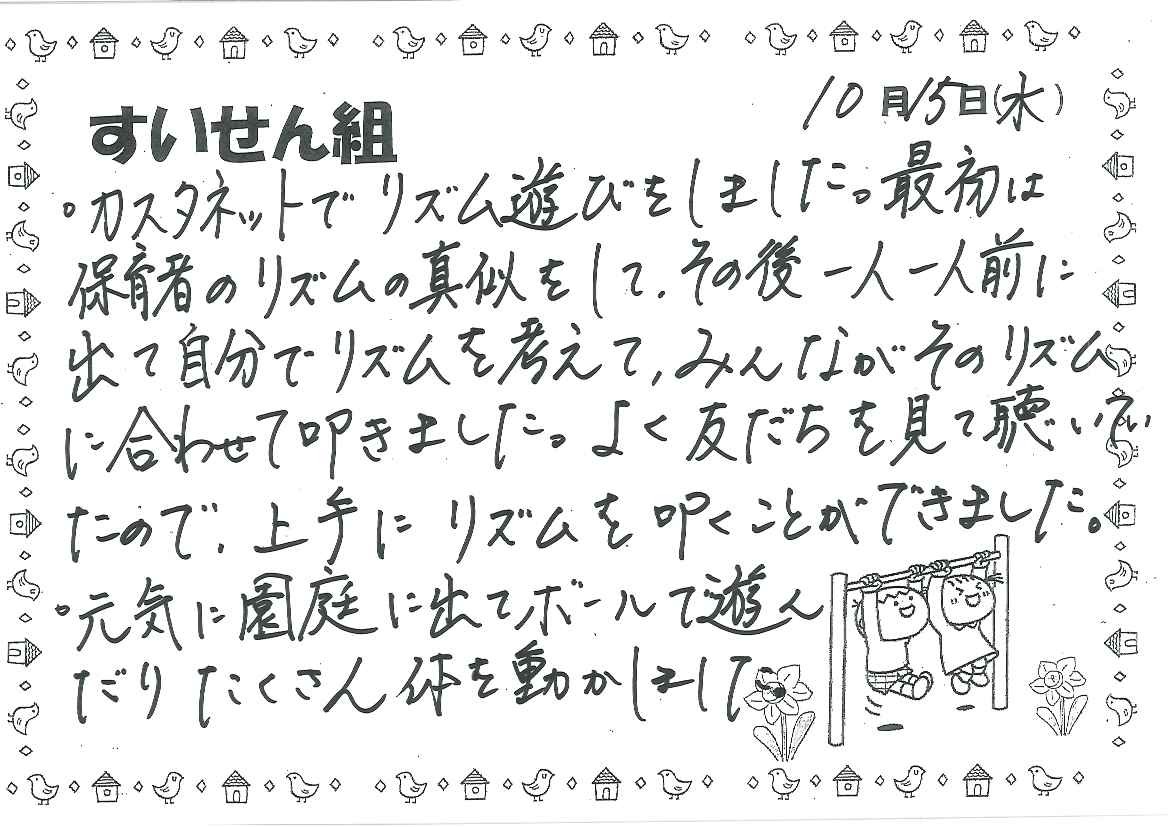 10月15日(水)
すいせん組
。カスタネットでリズム遊びをしました。最初は
保育者のリズムの真似をして、その後一人一人前に
出て自分でリズムを考えて、みんながそのリズム
に合わせて叩きました。よく友だちを見て聴いてい
たので、上手にリズムを叩くことができました。
。元気に園庭に出てボールで遊ん
だりたくさん体を動かしました。